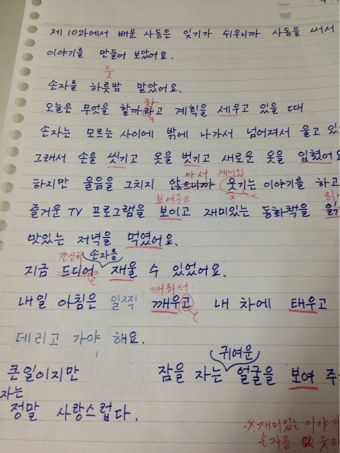 제 10과에서 배운 사동은 잊기가 쉬우니까 사동을 써서
이야기를 만들어 보았어요.
룻
손자를 하룻밤 맡았어요.
오늘은 무엇을 할까라고 계획을 세우고 있을 때
손자는 모르는 사이에 밖에 나가서 넘어져서 울고 있
그래서 손을 씻기고 옷을 벗기고 새로운 옷을 입혔어요
아서 재미있
하지만 울음을 그치지 않으니까 웃기는 이야기를 하고
보여주고
즐거운 TV 프로그램을 보이고 재미있는 동화책을 읽
맛있는 저녁을 먹였어요.
간신히 손자를
지금 드디어 재울 수 있었어요.
깨워서
내일 아침은 일찍 깨우고 내 차에 태우고
데리고 가야 해요.
귀여운
큰일이지만 잠을 자는 얼굴을 보여 주
자는
정말 사랑스럽다.
※재미있는 이야기
손자를 웃